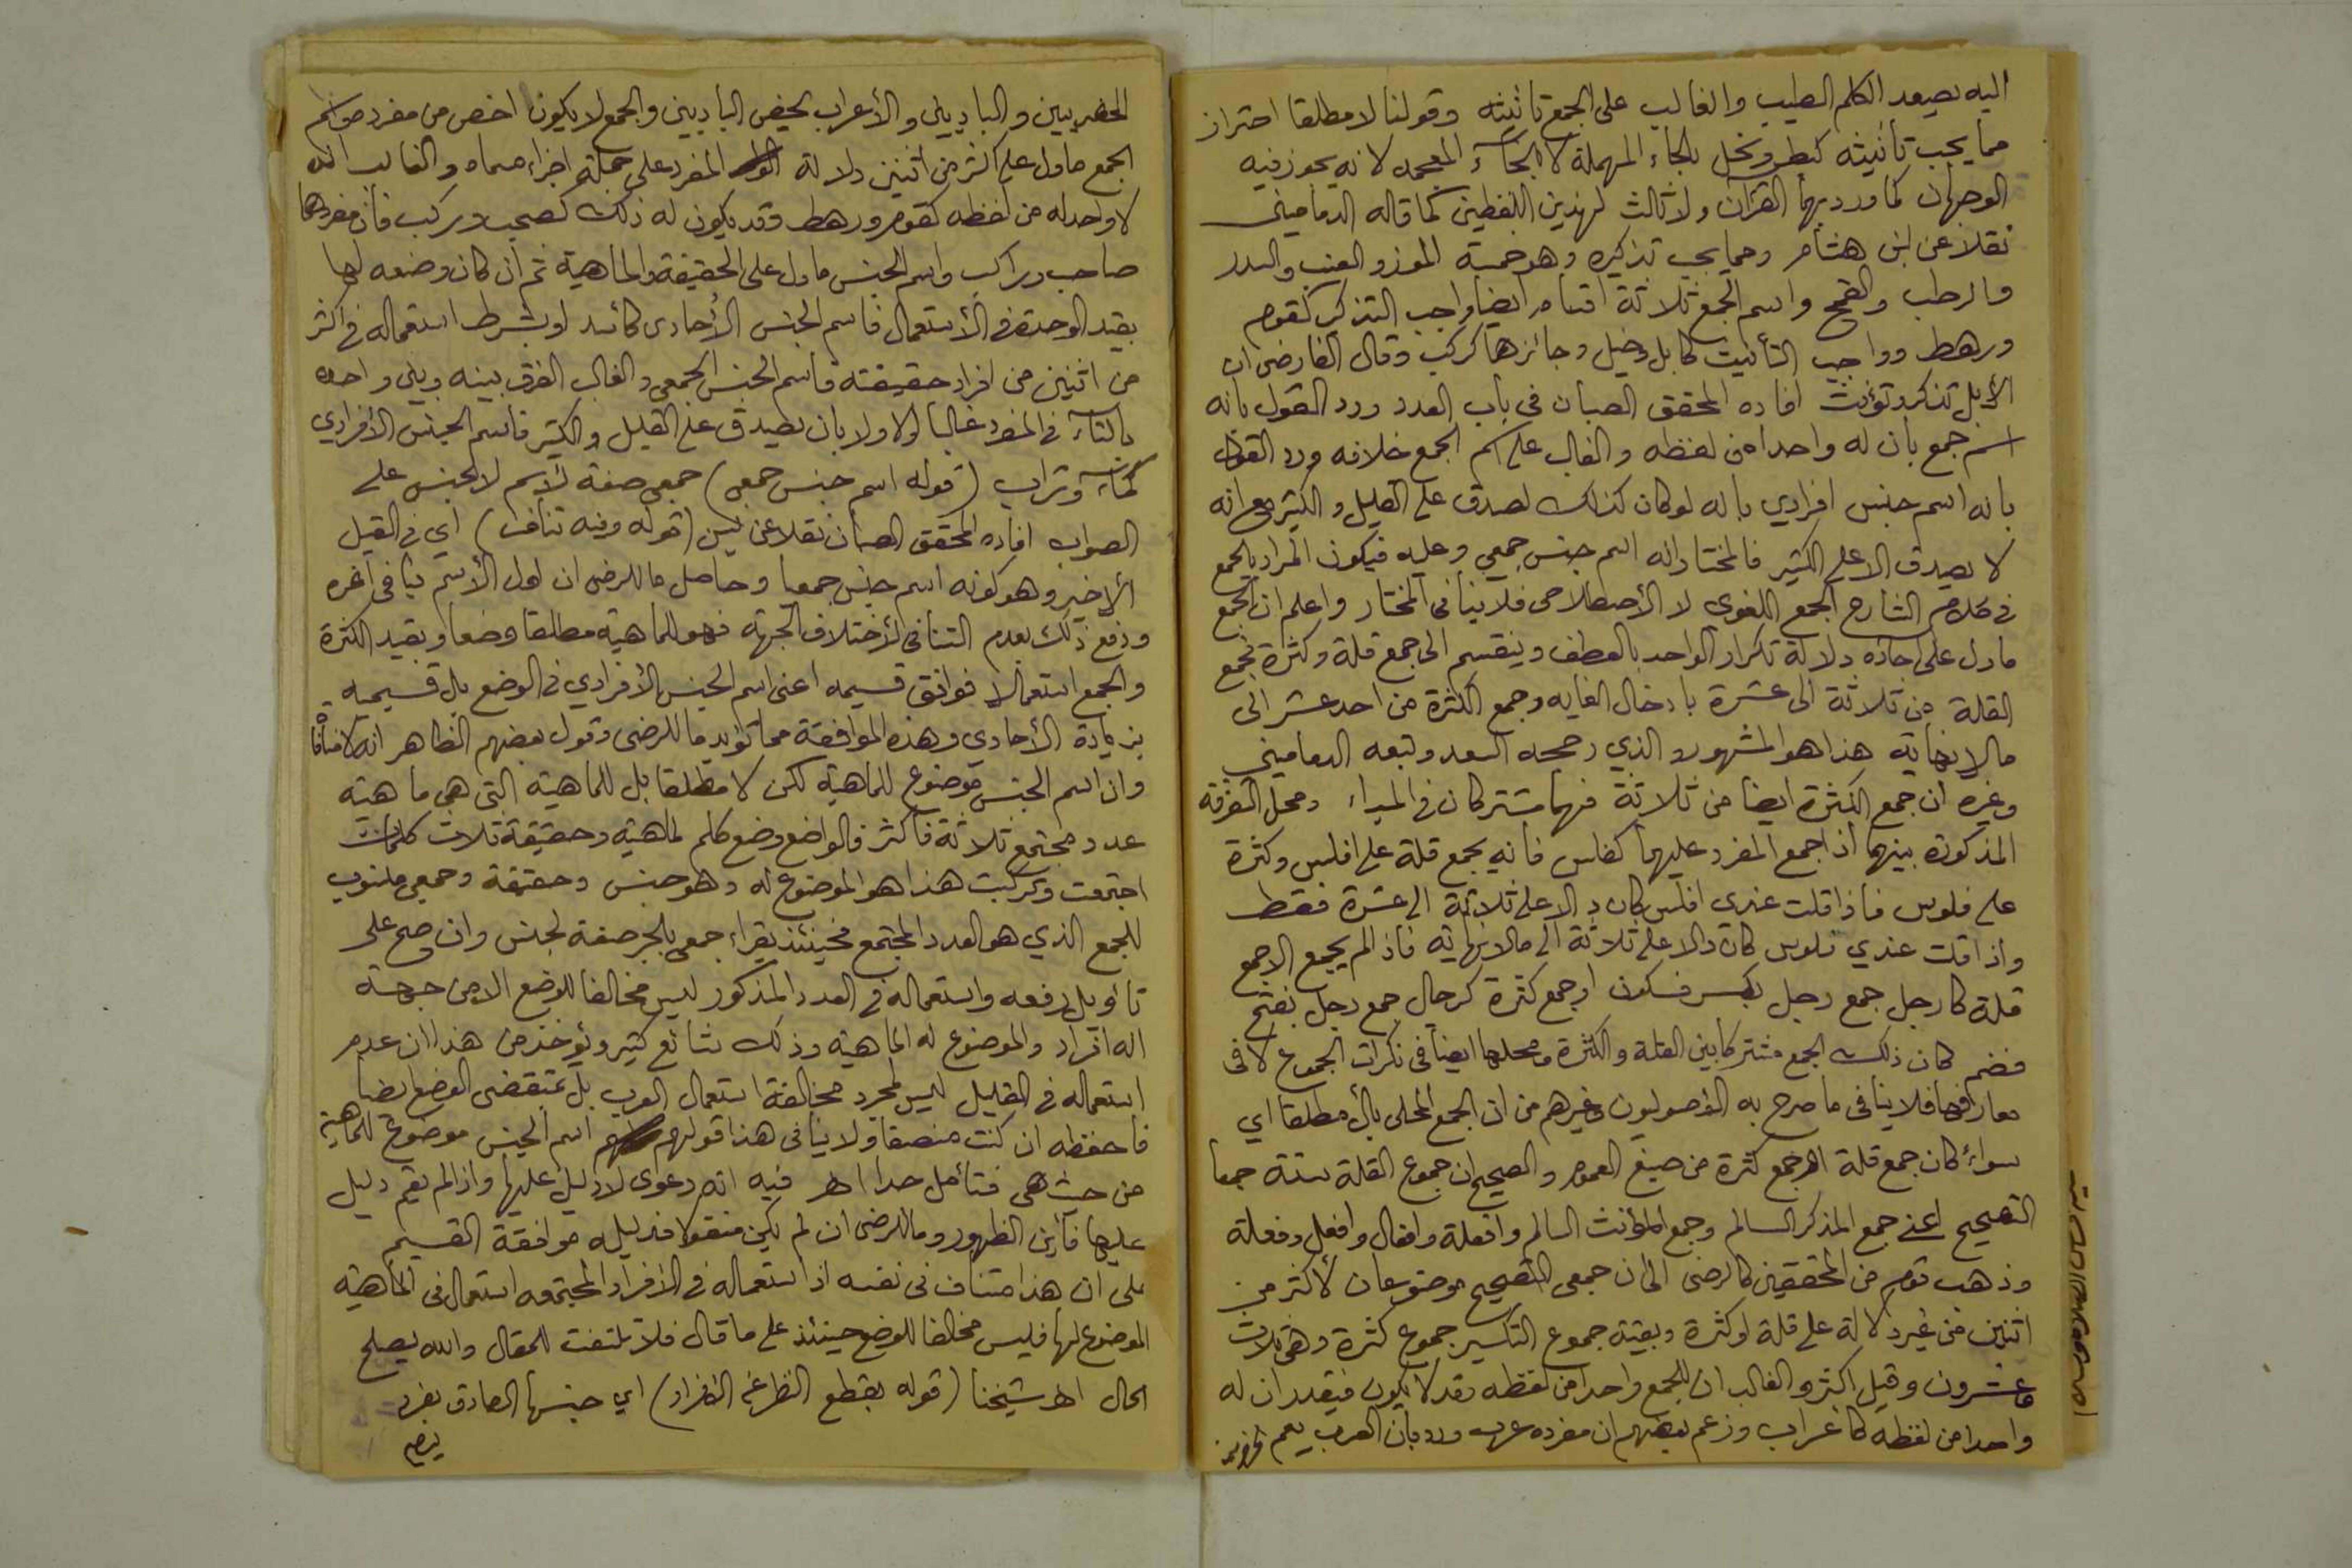 اليه يصعد الكلم الطيب والغالب على الجمع تأنيثه وقولنا لا مطلقا احتراز
مما يجب تأنيثه كبط ونحل بالحاء المهملة لا بالخاء المعجمه لانه يجوز فيه
الوجهان كما ورد بهما القرآن ولا ثالث لهذين اللفظين كما قاله الدماميني
نقلا عن ابن هشام ومما يجب تذكيره وهو خمسة الموز والعنب والسدر
والرطب والقمح واسم الجمع ثلاثة اقسام ايضا واجب التذكير كقوم
ورهط وواجب التأنيث كابل وخيل وجائزهما كركب وقال الفارضى ان
الأبل تذكر وتؤنث افاده المحقق الصبان في باب العدد ورد القول بانه
اسم جمع بأن له واحدا من لفظه والغالب على اسم الجمع خلافه ورد القول
بانه اسم جنس افرادي بانه لو كان كذلك لصدق على القليل والكثير مع انه
لا يصدق الا على الكثير فالمختار انه اسم جنس جمعي وعليه فيكون المراد بالجمع
في كلام الشارح الجمع اللغوي لا الأصطلاحى فلا ينافى المختار واعلم ان الجمع
ما دل على احاده دلالة تكرار الواحد بالعطف وينقسم الى جمع قلة وكثرة فجمع
القلة من ثلاثة الى عشرة بادخال الغايه وجمع الكثرة من احد عشر الى
مالا نهاية هذا هو المشهور والذي رجحه السعد وتبعه الدماميني
وغيره ان جمع الكثرة ايضا من ثلاثة فهما مشتركان في المبدا ومحل التفرقة
المذكورة بينهما اذا جمع المفرد عليهما كفلس فانه يجمع قلة على افلس وكثرة
على فلوس فاذا قلت عندى افلس كان دالا على ثلاثة الى عشرة فقط
واذا قلت عندي فلوس كان دالا على ثلاثة الى مالا نهاية فاذا لم يجمع الا جمع
قلة كارجل جمع رجل بكسر فسكون او جمع كثرة كرجال جمع رجل بفتح
فضم كان ذلك الجمع مشتركا بين القلة والكثرة ومحلها ايضا فى نكرات الجموع لا فى
معارفها فلا ينافى ما صرح به الأصوليون وغيرهم من ان الجمع المحلى بأل مطلقا اي
سواء كان جمع قلة او جمع كثرة من صيغ العموم والصحيح ان جموع القلة ستة جمعا
التصحيح اعنى جمع المذكر السالم وجمع المؤنث السالم وافعلة وافعال وافعل وفعلة
وذهب قوم من المحققين كالرضى الى ان جمعى التصحيح موضوعان لأكثر من
اثنين من غير دلالة على قلة او كثرة وبقية جموع التكسير جموع كثرة وهى ثلاث
وعشرون وقيل اكثر والغالب ان للجمع واحدا من لفظه وقد لا يكون فيقدر ان له
واحدا من لفظه كاعراب وزعم بعضهم ان مفرده عرب ورد بان العرب يعم
الحضريين والباديين والأعراب يخص الباديين والجمع لا يكون اخص من مفرده واسم
الجمع ما دل على اكثر من اثنين دلالة المفرد على جملة اجزاء مسماه والغالب انه
لا واحد له من لفظه كقوم ورهط وقد يكون له ذلك كصحب وركب فان مفردهما
صاحب وراكب واسم الجنس ما دل على الحقيقة والماهية ثم ان كان وضعه لها
بقيد الوحدة في الأستعمال فاسم الجنس الأحادى كاسد او بشرط استعماله في اكثر
من اثنين من افراد حقيقته فاسم الجنس الجمعى والغالب الفرق بينه وبين واحده
بالتاء في المفرد غالبا اولا ولا بان يصدق على القليل والكثير فاسم الجنس الأفرادي
كماء وتراب (قوله اسم جنس جمعى) جمعى صفة لاسم لا لجنس على
الصواب افاده المحقق الصبان نقلا عن يس (قوله وفيه تناف) اي في القيل
الأخير وهو كونه اسم جنس جمعيا وحاصل ما للرضى ان اول الأسم ينافى اخره
ودفع ذلك بعدم التنافى لأختلاف الجهة فهو للماهية مطلقا وضعا وبقيد الكثرة
والجمع استعمالا فوافق قسيمه اعنى اسم الجنس الأفرادي في الوضع بل قسيميه
بزيادة الأحادي وهذه الموافقة مما تؤيد ما للرضى وقول بعضهم الظاهر انه لا منافاة
وان اسم الجنس موضوع للماهية لكن لا مطلقا بل للماهية التى هي ماهية
عدد مجتمع ثلاثة فاكثر فالواضع وضع كلم لماهية وحقيقة ثلاث كلمات
اجتمعت وتركبت هذا هو الموضوع له وهو جنس وحقيقة وجمعى منسوب
للجمع الذي هو العدد المجتمع فحينئذ يقراء جمعى بالجر صفة لجنس وان صح على
تأويل رفعه واستعماله في العدد المذكور ليس مخالفا للوضع الا من جهة
انه افراد والموضوع له الماهية وذلك شائع كثير ويؤخذ من هذا ان عدم
استعماله في القليل ليس لمجرد مخالفة استعمال العرب بل بمقتضى الوضع ايضا
فاحفظه ان كنت منصفا ولا ينافى هذا قولهم اسم الجنس موضوع للماهية
من حيث هى فتأمل جدا اهـ فيه انه دعوى لا دليل عليها واذا لم يقم دليل
عليها فأين الظهور وما للرضى ان لم يكن منقولا فدليله موافقة القسيم
على ان هذا متناف فى نفسه اذ استعماله في الأفراد المجتمعه استعمال فى الماهية
الموضوع لها فليس مخالفا للوضع حينئذ على ما قال فلا تلتفت للمقال والله يصلح
الحال اهـ شيخنا (قوله بقطع النظر عن الافراد) اي جنسها الصادق بفرد